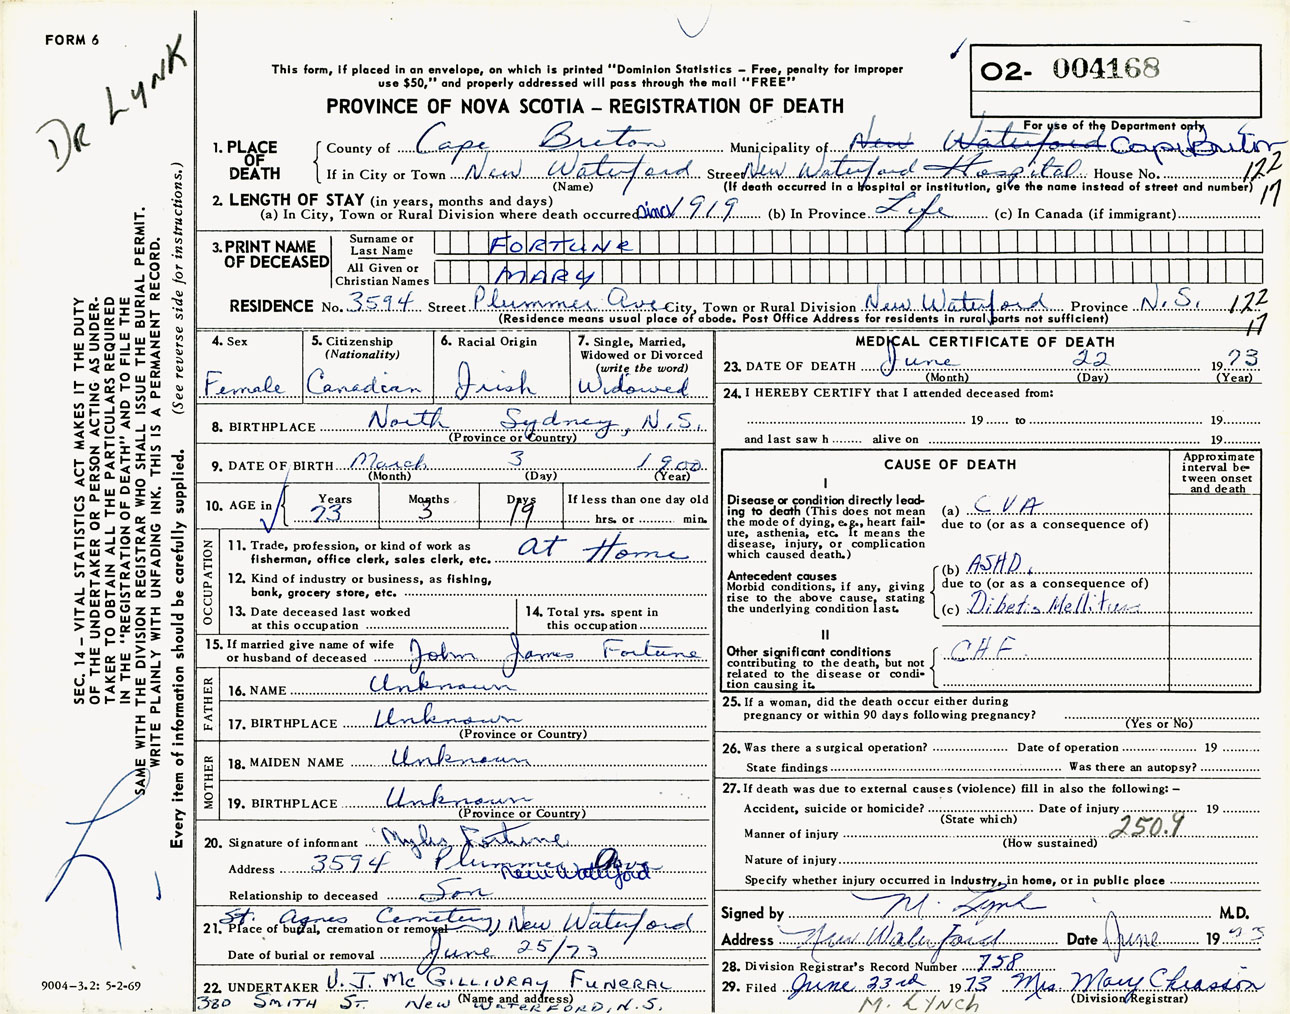 FORM 6
DR LYNK
This form, if placed in an envelope, on which is printed "Dominion Statistics – Free, penalty for improper
use $50," and properly addressed will pass through the mail "FREE"
PROVINCE OF NOVA SCOTIA – REGISTRATION OF DEATH
O2- 004168
For use of the Department only
1. PLACE OF DEATH
County of Cape Breton Municipality of New Waterford Cape Breton
If in City or Town New Waterford Street New Waterford Hospital House No. 122
(Name) (If death occurred in a hospital or institution, give the name instead of street and number) 17
2. LENGTH OF STAY (in years, months and days)
(a) In City, Town or Rural Division where death occurred since 1919 (b) In Province Life (c) In Canada (if immigrant)
3. PRINT NAME OF DECEASED
Surname or Last Name FORTUNE
All Given or Christian Names MARY
RESIDENCE No. 3594 Street Plummer Ave City, Town or Rural Division New Waterford Province N.S. 122
(Residence means usual place of abode. Post Office Address for residents in rural parts not sufficient) 17
4. Sex
Female
5. Citizenship
(Nationality)
Canadian
6. Racial Origin
Irish
7. Single, Married,
Widowed or Divorced
(write the word)
Widowed
8. BIRTHPLACE North Sydney, N.S.
(Province or Country)
9. DATE OF BIRTH March 3 1900
(Month) (Day) (Year)
10. AGE in Years 73 Months 3 Days 19 If less than one day old
hrs. or min.
OCCUPATION
11. Trade, profession, or kind of work as
fisherman, office clerk, sales clerk, etc. At Home
12. Kind of industry or business, as fishing,
bank, grocery store, etc.
13. Date deceased last worked
at this occupation
14. Total yrs. spent in
this occupation
15. If married give name of wife
or husband of deceased John James Fortune
FATHER
16. NAME Unknown
17. BIRTHPLACE Unknown
(Province or Country)
MOTHER
18. MAIDEN NAME Unknown
19. BIRTHPLACE Unknown
(Province or Country)
20. Signature of informant Myles Fortune
Address 3594 Plummer Ave
New Waterford
Relationship to deceased Son
21. Place of burial, cremation or removal St. Agnes Cemetery, New Waterford
Date of burial or removal June 25/73
22. UNDERTAKER V. J. McGILLIVRAY FUNERAL
(Name and address)
380 SMITH ST. NEW WATERFORD, N.S.
MEDICAL CERTIFICATE OF DEATH
23. DATE OF DEATH June 22 1973
(Month) (Day) (Year)
24. I HEREBY CERTIFY that I attended deceased from:
19 to 19
and last saw h alive on 19
CAUSE OF DEATH
Approximate
interval be-
tween onset
and death
I
Disease or condition directly lead-
ing to death (This does not mean
the mode of dying, e.g., heart fail-
ure, asthenia, etc. It means the
disease, injury, or complication
which caused death.)
(a) CVA
due to (or as a consequence of)
Antecedent causes
Morbid conditions, if any, giving
rise to the above cause, stating
the underlying condition last.
(b) ASHD.
due to (or as a consequence of)
(c) Dibetis Mellitus
II
Other significant conditions
contributing to the death, but not
related to the disease or condi-
tion causing it.
CHF
25. If a woman, did the death occur either during
pregnancy or within 90 days following pregnancy?
(Yes or No)
26. Was there a surgical operation? Date of operation 19
State findings Was there an autopsy?
27. If death was due to external causes (violence) fill in also the following: –
Accident, suicide or homicide? Date of injury 19
(State which)
Manner of injury 250.9
(How sustained)
Nature of injury
Specify whether injury occurred in industry, in home, or in public place
Signed by M. Lynk M.D.
Address New Waterford Date June 1973
28. Division Registrar's Record Number 758
29. Filed June 23rd 1973 Mrs. Mary Chiasson
(Division Registrar)
M. LYNCH
SEC. 14 – VITAL STATISTICS ACT MAKES IT THE DUTY
OF THE UNDERTAKER OR PERSON ACTING AS UNDER-
TAKER TO OBTAIN ALL THE PARTICULARS REQUIRED
IN THE "REGISTRATION OF DEATH" AND TO FILE THE
SAME WITH THE DIVISION REGISTRAR WHO SHALL ISSUE THE BURIAL PERMIT.
WRITE PLAINLY WITH UNFADING INK. THIS IS A PERMANENT RECORD.
Every item of information should be carefully supplied. (See reverse side for instructions.)
9004-3.2: 5-2-69